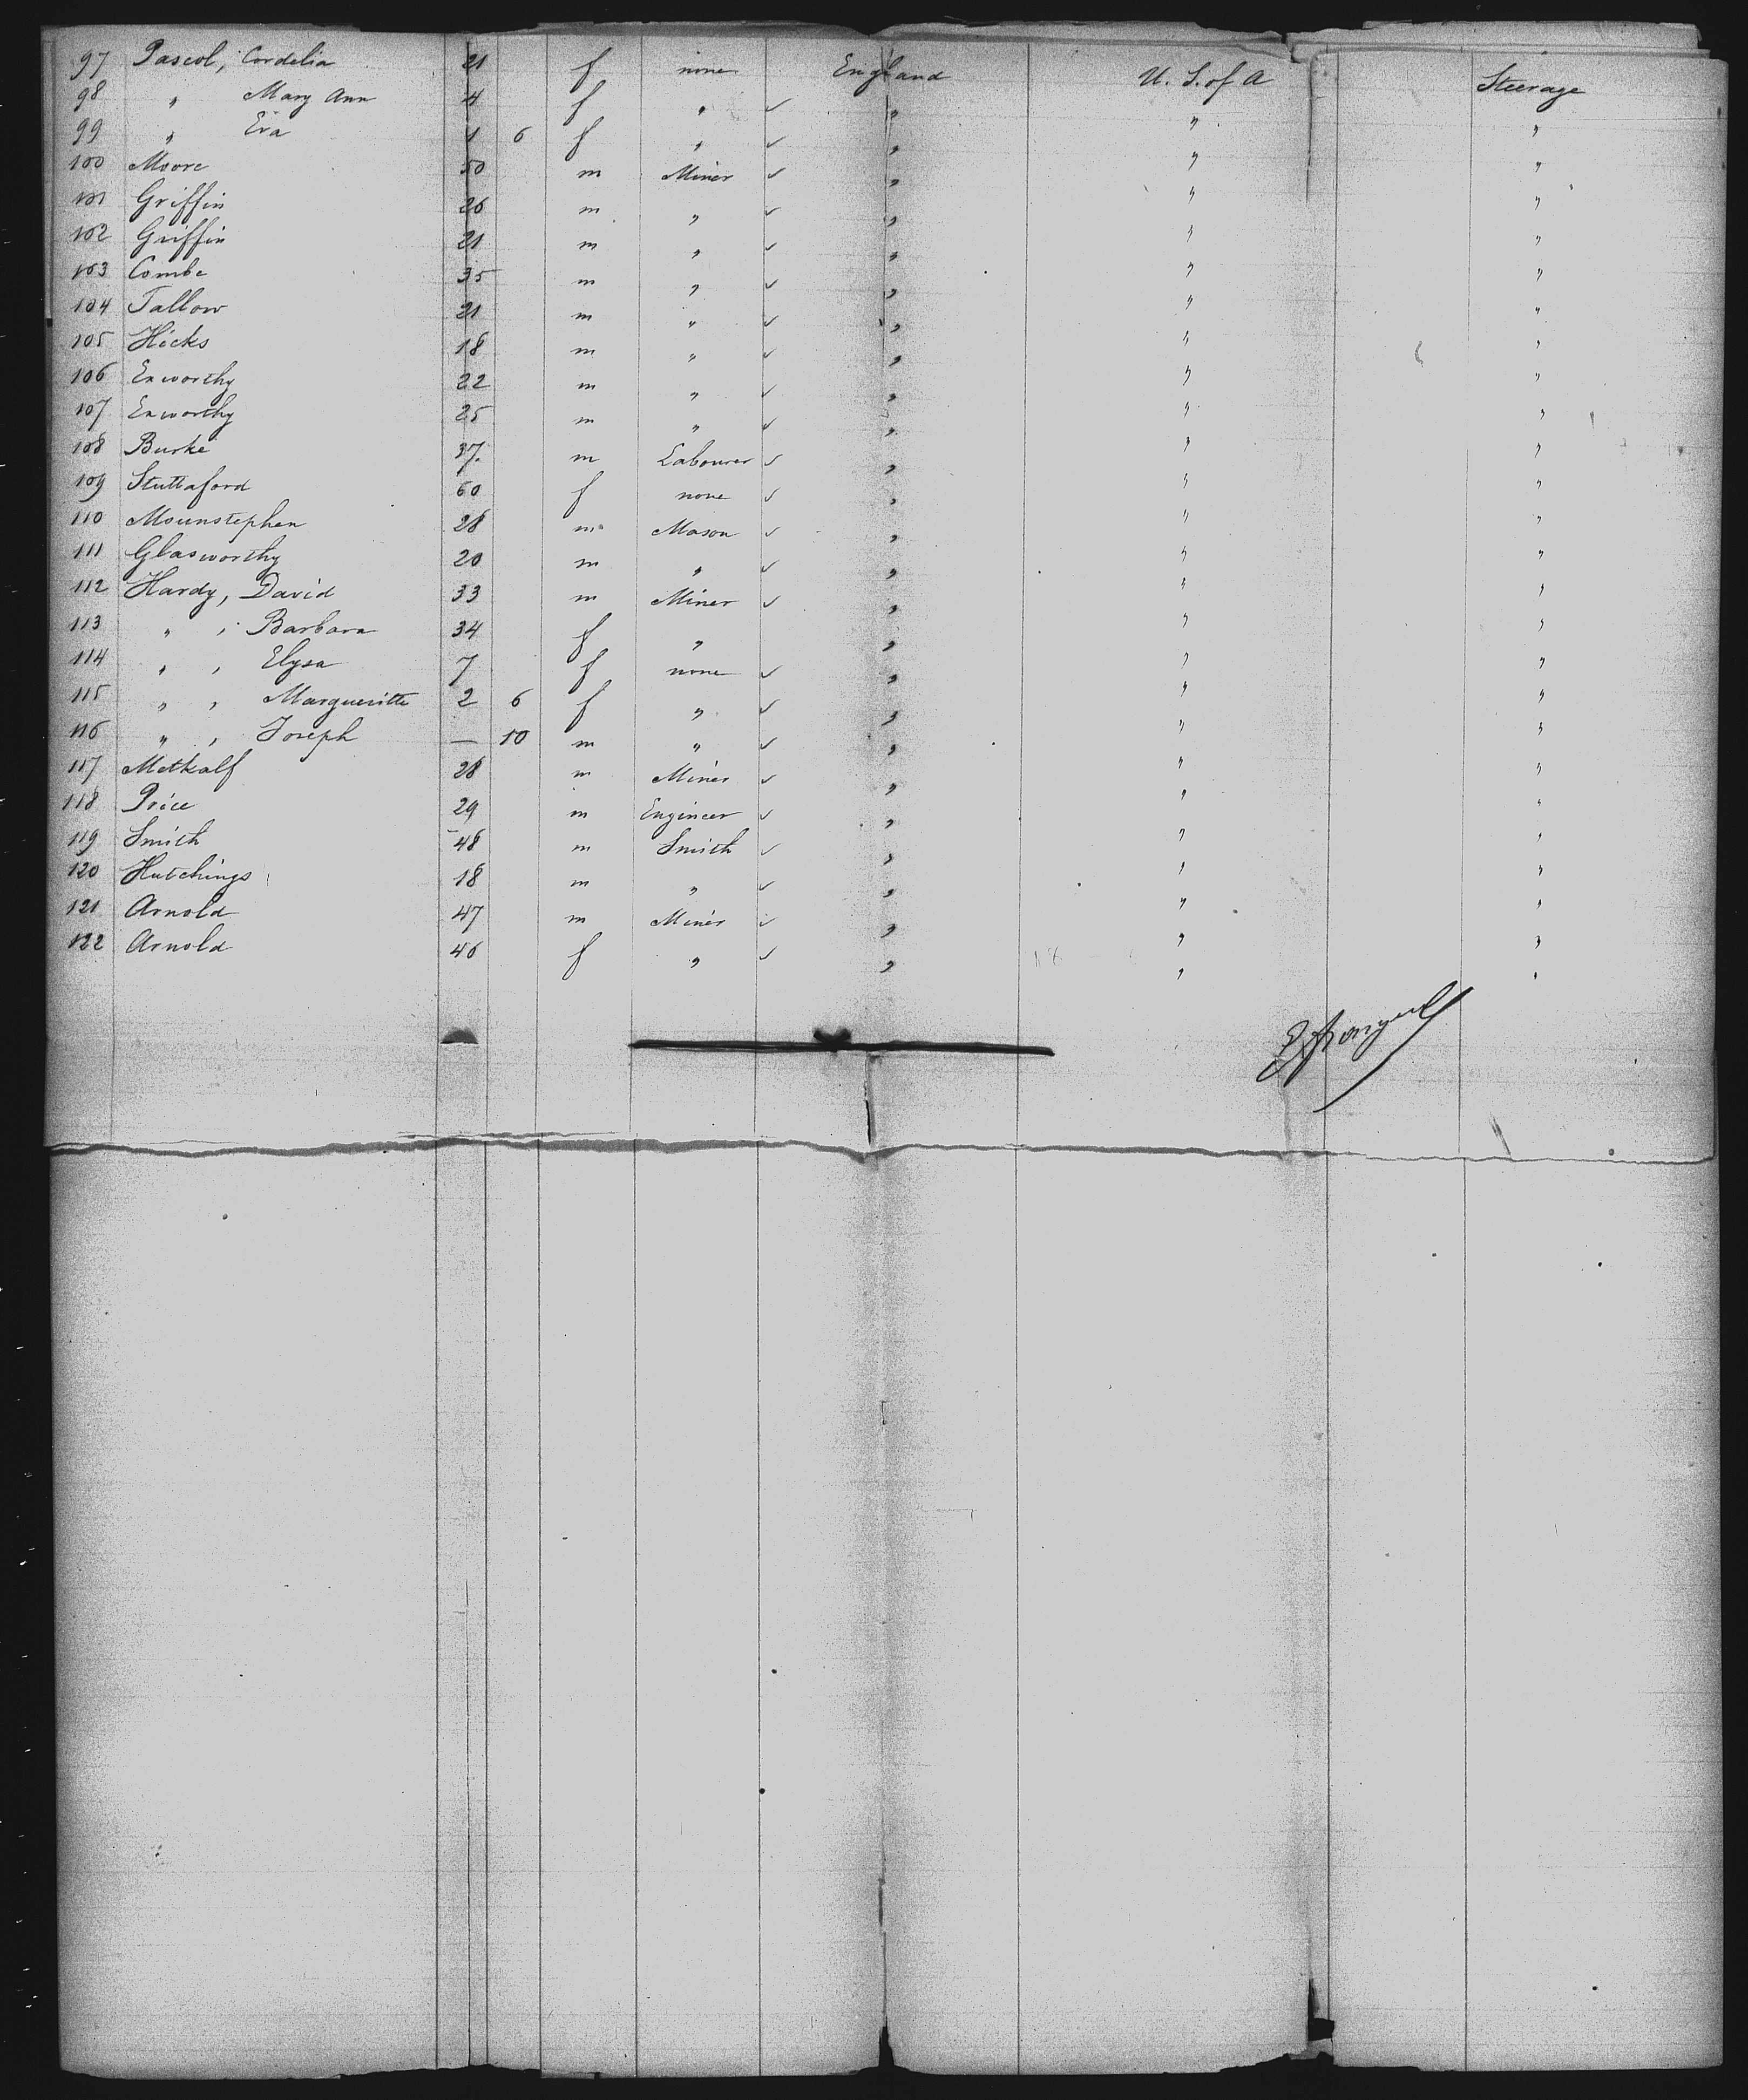 97 Pascol, Cordelia 21 f none England U. S. of A Steerage
98 " Mary Ann 4 f " " " "
99 " Eva 1 6 f " " " "
100 Moore 50 m Miner " " "
101 Griffin 26 m " " " "
102 Griffin 21 m " " " "
103 Combe 35 m " " " "
104 Tallow 21 m " " " "
105 Hicks 18 m " " " "
106 Exworthy 22 m " " " "
107 Exworthy 25 m " " " "
108 Burke 37. m Labourer " " "
109 Stuttaford 60 f none " " "
110 Mounstephen 28 m Mason " " "
111 Glasworthy 20 m " " " "
112 Hardy, David 33 m Miner " " "
113 " , Barbara 34 f " " " "
114 " , Elysa 7 f none " " "
115 " , Margueritte 2 6 f " " " "
116 " , Joseph — 10 m " " " "
117 Metkalf 28 m Miner " " "
118 Price 29 m Engineer " " "
119 Smith 48 m Smith " " "
120 Hutchings 18 m " " " "
121 Arnold 47 m Miner " " "
122 Arnold 46 f " " " "